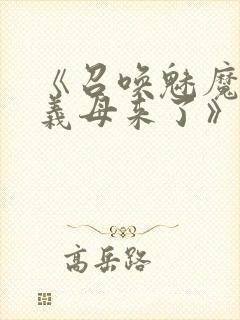 《召唤魅魔
義母来了》
高岳路